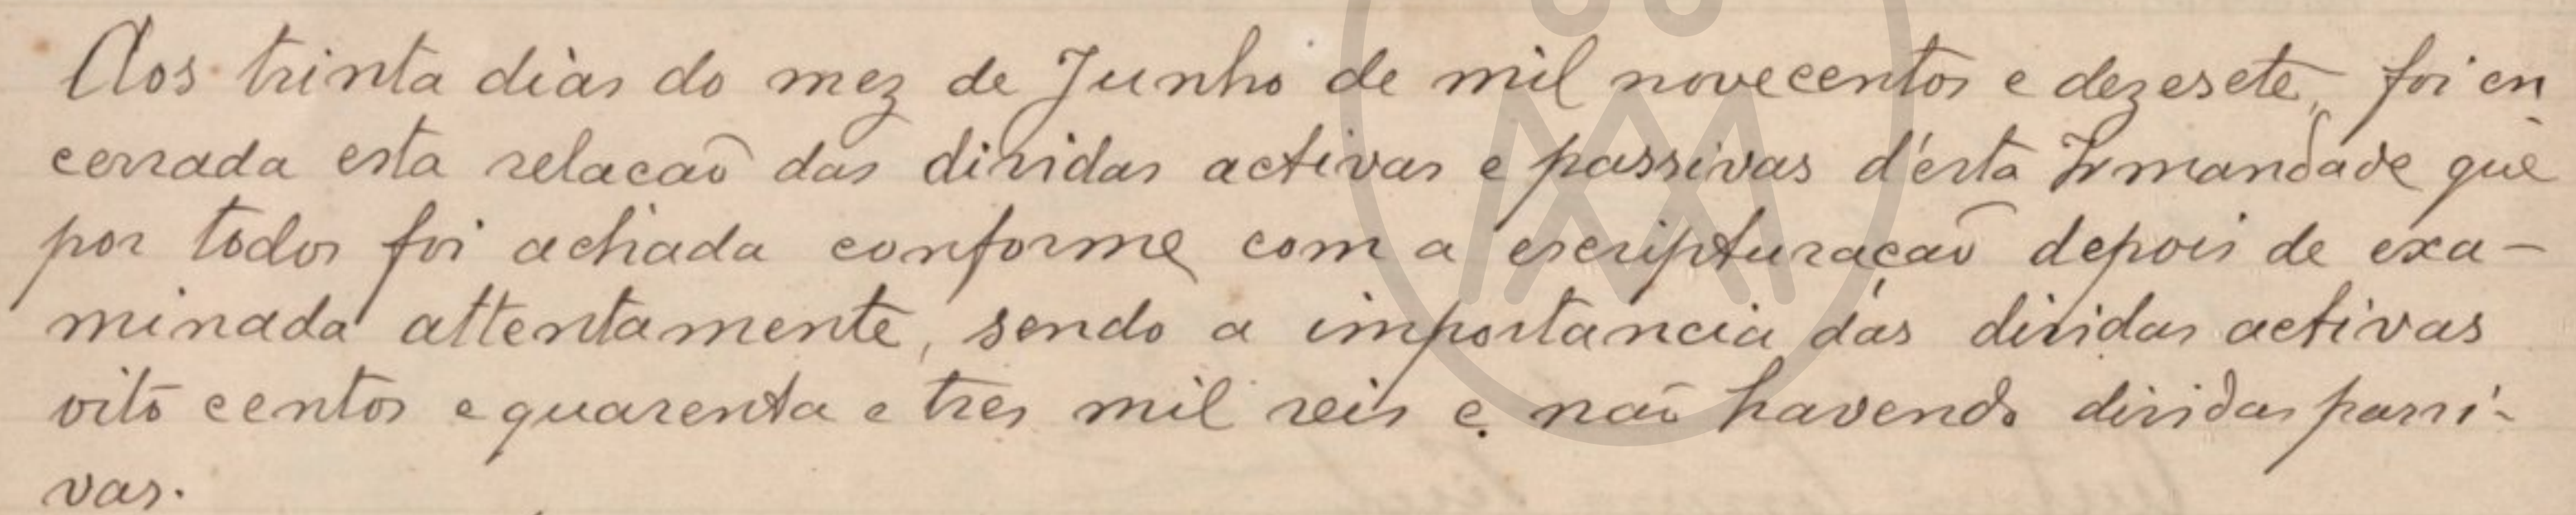 Aos trinta dias do mez de Junho de mil novecentos e dezesete, foi en
cerrada esta relacaõ das dividas activas e passivas d'esta Irmandade que
por todos foi achada conforme com a escripturaçaõ depois de exa-
minada attentamente, sendo a importancia das dividas activas
oito centos e quarenta e tres mil reis e naõ havendo dividas passi-
vas.